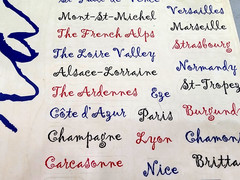 St Paul de Vence Versailles
Mont-St-Michel Marseille
The French Alps Strasbourg
The Loire Valley Normandy
Alsace-Lorraine St-Tropez
The Ardennes Eze
Côte d'Azur Paris Burgund
Champagne Lyon Chamon
Carcasonne Nice Britta